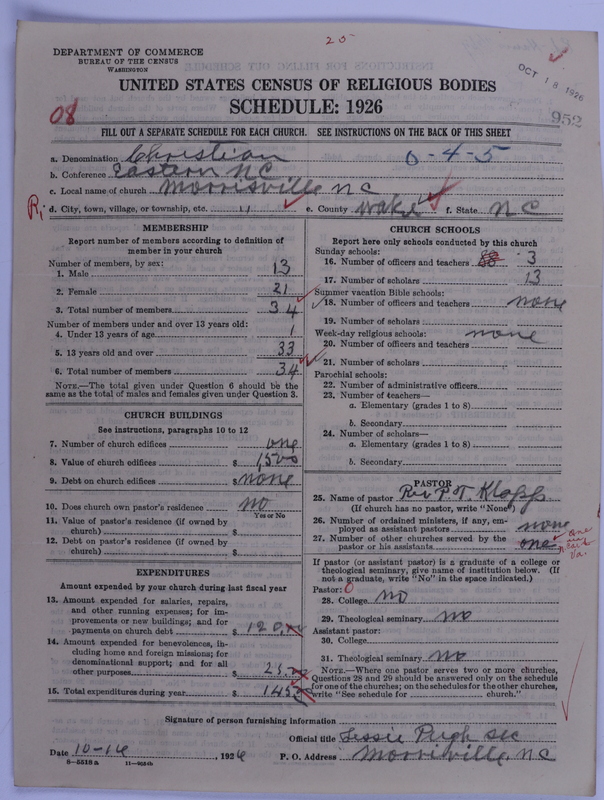 25
DEPARTMENT OF COMMERCE
BUREAU OF THE CENSUS
WASHINGTON
OCT 18 1926
UNITED STATES CENSUS OF RELIGIOUS BODIES
952
SCHEDULE: 1926
08
FILL OUT A SEPARATE SCHEDULE FOR EACH CHURCH. SEE INSTRUCTIONS ON THE BACK OF THIS SHEET
a. Denomination Christian 0-4-5
b. Conference Eastern NC
c. Local name of church Morrisville NC
R, d. City, town, village, or township, etc. " e. County Wake f. State NC
MEMBERSHIP
Report number of members according to definition of member in your church
Number of members, by sex:
1. Male 13
2. Female 21
3. Total number of members 34
Number of members under and over 13 years old:
4. Under 13 years of age 1
5. 13 years old and over 33
6. Total number of members 34
NOTE.—The total given under Question 6 should be the same as the total of males and females given under Question 3.
CHURCH BUILDINGS
See instructions, paragraphs 10 to 12
7. Number of church edifices one
8. Value of church edifices $ 1,500
9. Debt on church edifices $ none
10. Does church own pastor's residence? NO
Yes or No
11. Value of pastor's residence (if owned by church) $
12. Debt on pastor's residence (if owned by church) $
EXPENDITURES
Amount expended by your church during last fiscal year
13. Amount expended for salaries, repairs, and other running expenses; for improvements or new buildings; and for payments on church debt $ 120.
14. Amount expended for benevolences, including home and foreign missions; for denominational support; and for all other purposes $ 25.
15. Total expenditures during year $ 145
CHURCH SCHOOLS
Report here only schools conducted by this church
Sunday schools:
16. Number of officers and teachers 3
17. Number of scholars 13
Summer vacation Bible schools:
18. Number of officers and teachers none
19. Number of scholars
Week-day religious schools: none
20. Number of officers and teachers
21. Number of scholars
Parochial schools:
22. Number of administrative officers
23. Number of teachers—
a. Elementary (grades 1 to 8)
b. Secondary
24. Number of scholars—
a. Elementary (grades 1 to 8)
b. Secondary
PASTOR
25. Name of pastor Rev P. T. Klapp
(If church has no pastor, write "None")
26. Number of ordained ministers, if any, employed as assistant pastors none
27. Number of other churches served by the pastor or his assistants one
If pastor (or assistant pastor) is a graduate of a college or theological seminary, give name of institution below. (If not a graduate, write "No" in the space indicated.)
Pastor: 0
28. College NO
29. Theological seminary NO
Assistant pastor:
30. College
31. Theological seminary NO
NOTE.—Where one pastor serves two or more churches, Questions 28 and 29 should be answered only on the schedule for one of the churches; on the schedules for the other churches, write "See schedule for church."
Signature of person furnishing information
Official title Lessie Pugh sec
Date 10-16, 1926 P. O. Address Morrisville, NC
8-5518a 11-9554b